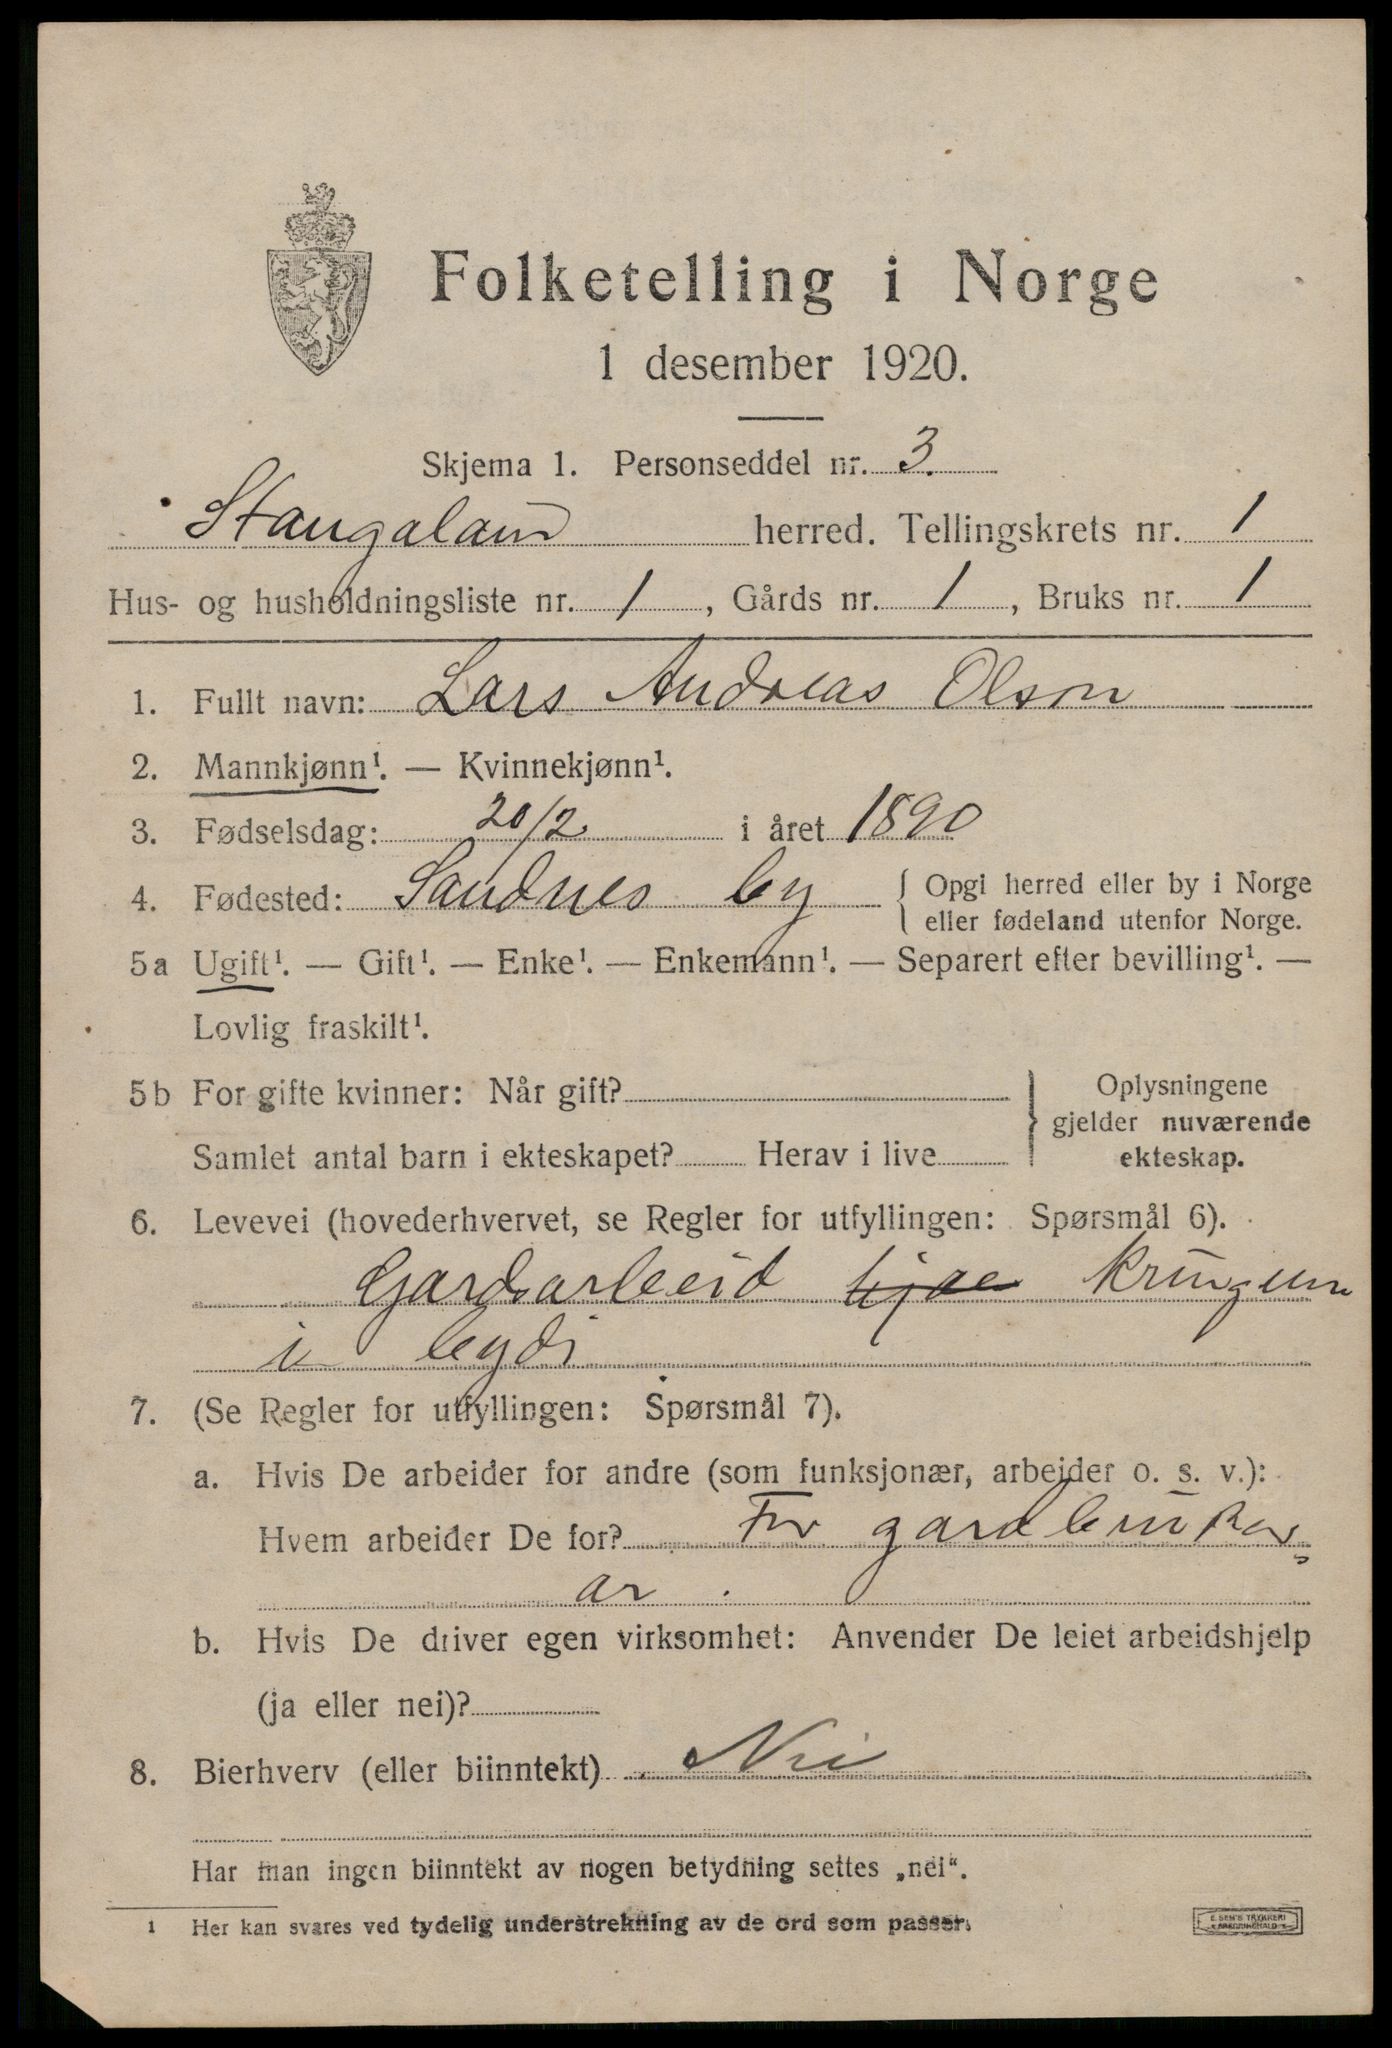 Folketelling i Norge
1 desember 1920.
Skjema 1. Personseddel nr. 3.
Stangaland herred. Tellingskrets nr. 1
Hus- og husholdningsliste nr. 1, Gårds nr. 1, Bruks nr. 1
1. Fullt navn: Lars Andreas Olson
2. Mannkjønn¹. — Kvinnekjønn¹.
3. Fødselsdag: 20/2 i året 1890
4. Fødested: Sandnes by { Opgi herred eller by i Norge
eller fødeland utenfor Norge.
5a Ugift¹. — Gift¹. — Enke¹. — Enkemann¹. — Separert efter bevilling¹. —
Lovlig fraskilt¹.
5b For gifte kvinner: Når gift?
Samlet antal barn i ekteskapet? Herav i live
} Oplysningene
gjelder nuværende
ekteskap.
6. Levevei (hovederhvervet, se Regler for utfyllingen: Spørsmål 6).
Gardsarbeid kringum
i bygdi
7. (Se Regler for utfyllingen: Spørsmål 7).
a. Hvis De arbeider for andre (som funksjonær, arbeider o. s. v.):
Hvem arbeider De for? For gardbrukar-
ar.
b. Hvis De driver egen virksomhet: Anvender De leiet arbeidshjelp
(ja eller nei)?
8. Bierhverv (eller biinntekt) Nei
Har man ingen biinntekt av nogen betydning settes „nei“.
1 Her kan svares ved tydelig understrekning av de ord som passer.